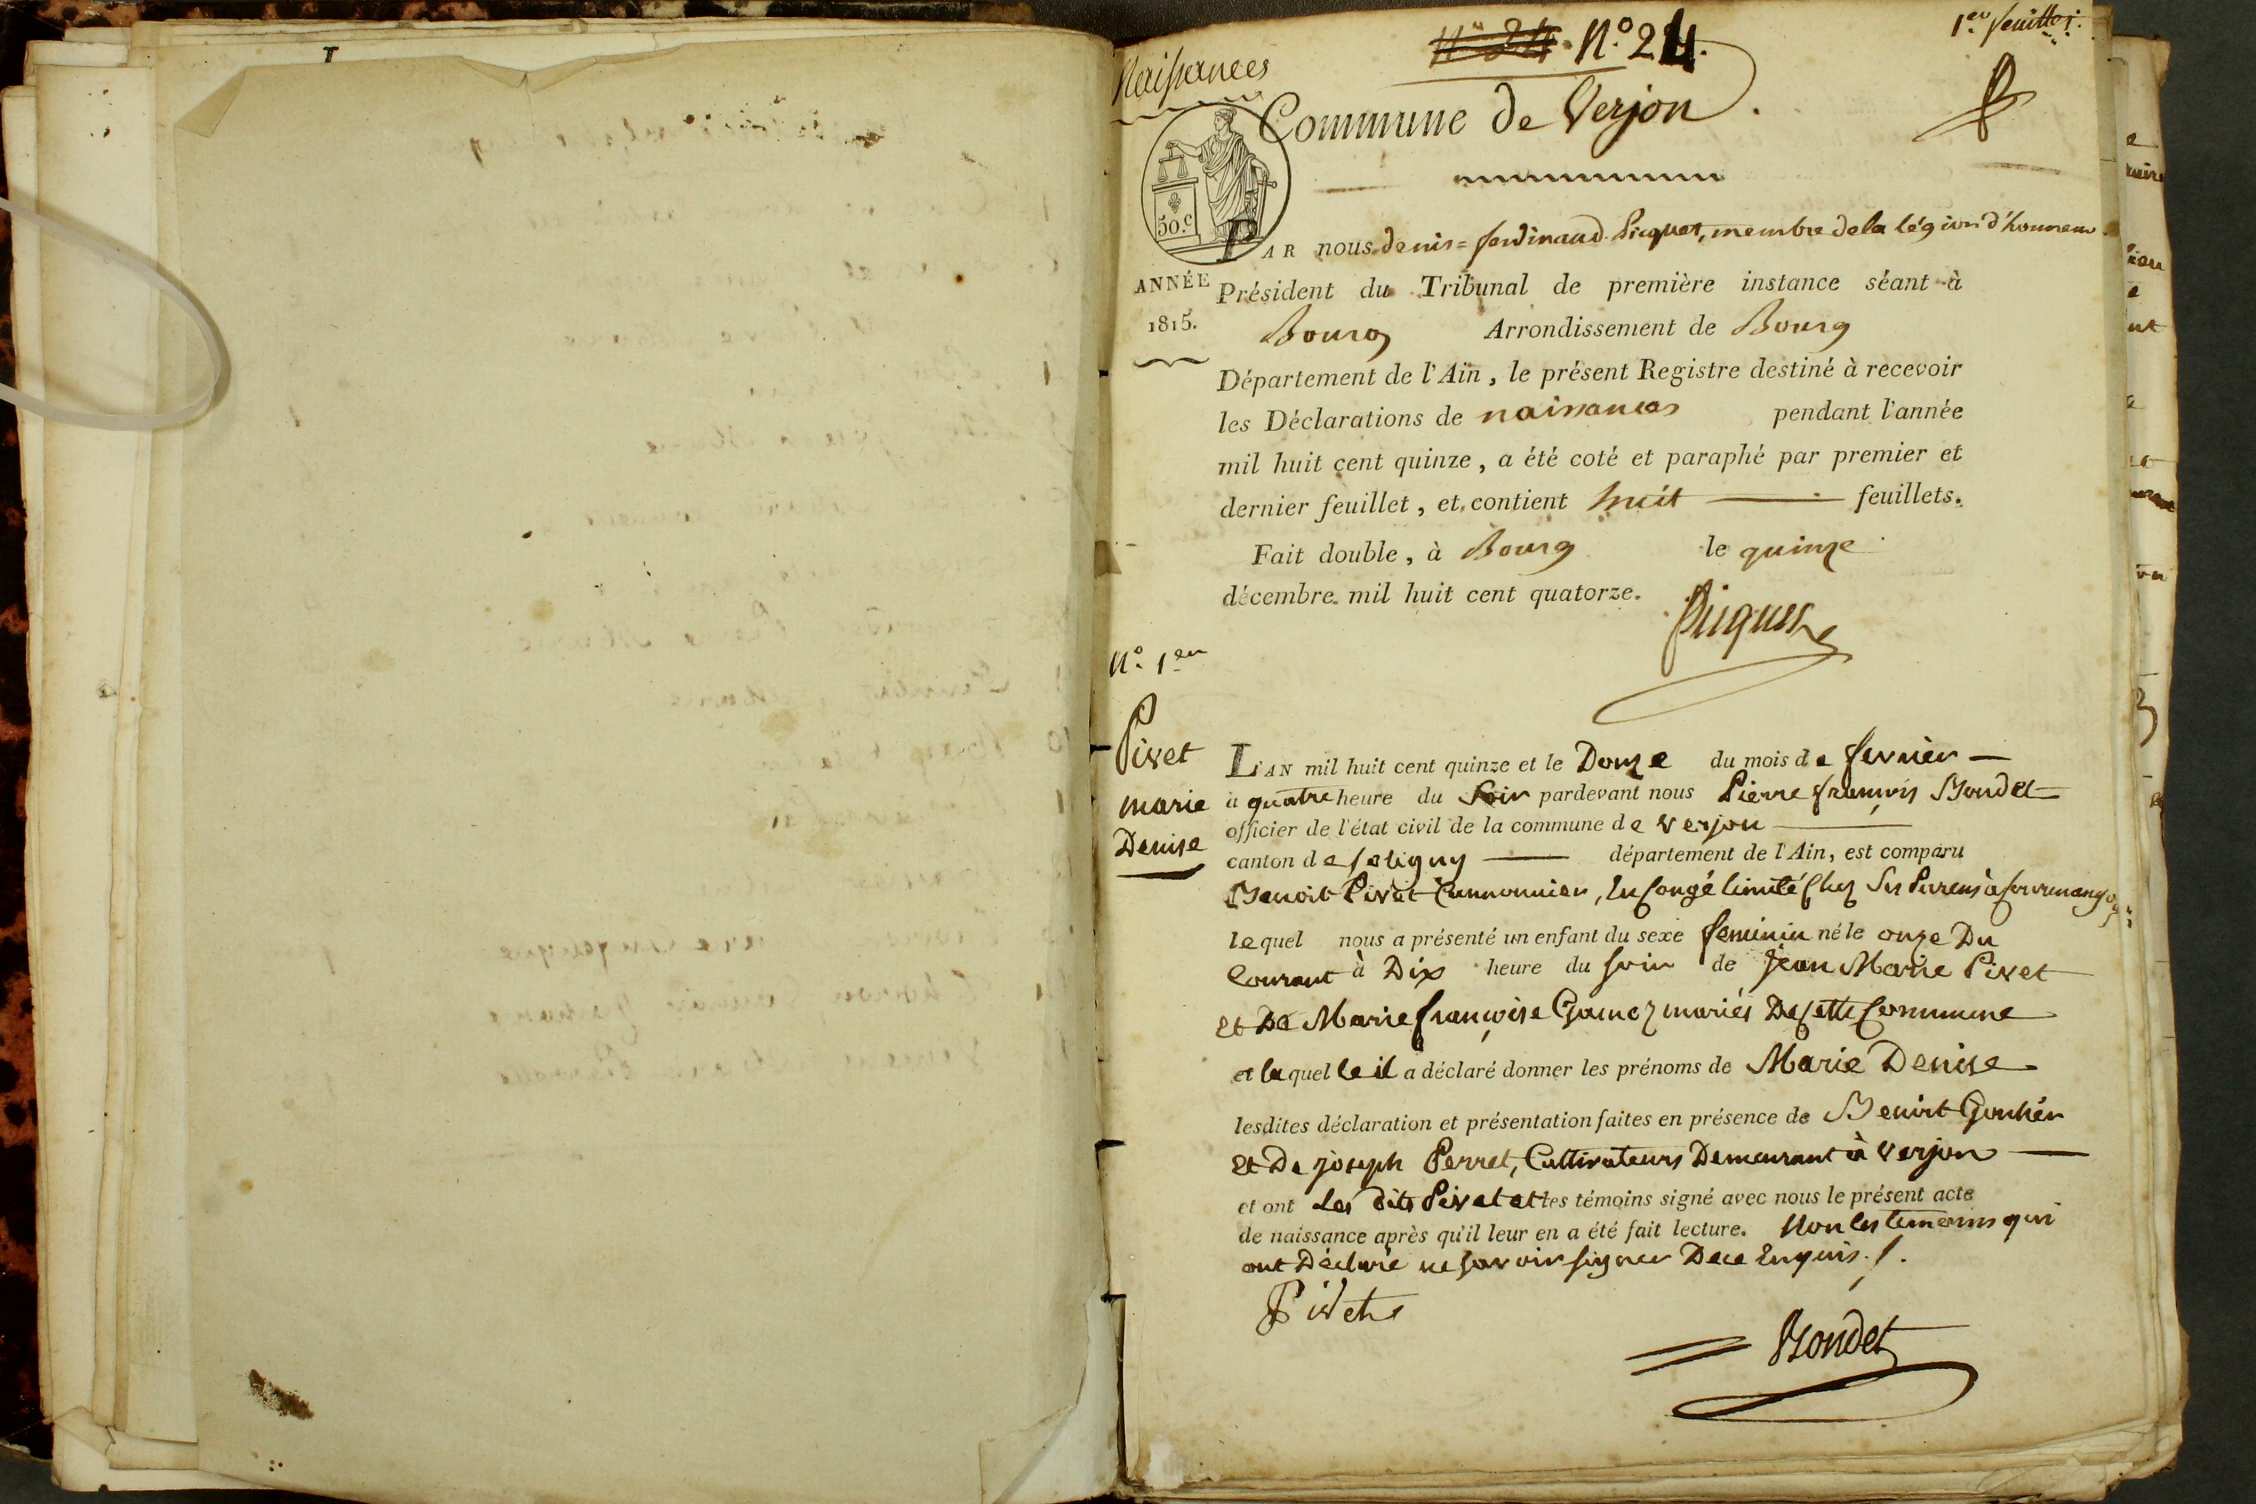 1er feuillet.
N° 24. N° 24.
Naissances
Commune de Verjon.
50.c
PAR nous, denis = ferdinand Picquet, membre de la légion d'honneur
ANNÉE
1815.
Président du Tribunal de première instance séant à
Bourg Arrondissement de Bourg
Département de l'Ain, le présent Registre destiné à recevoir
les Déclarations de naissances pendant l'année
mil huit cent quinze, a été coté et paraphé par premier et
dernier feuillet, et contient huit feuillets.
Fait double, à Bourg le quinze
décembre mil huit cent quatorze.
Picquet
N° 1er
Pivet
marie
Denise
L'AN mil huit cent quinze et le Douze du mois de fevrier
à quatre heure du Soir pardevant nous Pierre françois Bondet
officier de l'état civil de la commune de Verjon
canton de
département de l'Ain, est comparu
Benoit Pivet Cannonnier, En Congé limité Chez Ses Parens à
lequel nous a présenté un enfant du sexe feminin né le onze Du
Courant à Dix heure du soir de Jean Marie Pivet
et De Marie françoise mariés De Cette Commune
et laquelle il a déclaré donner les prénoms de Marie Denise
lesdites déclaration et présentation faites en présence de Benoit
et De joseph Perret, Cultivateurs Demeurant à Verjon
et ont Les dits Pivet et les témoins signé avec nous le présent acte
de naissance après qu'il leur en a été fait lecture. Non les temoins qui
ont Déclaré ne savoir signer De ce Enquis.
Pivet
Bondet